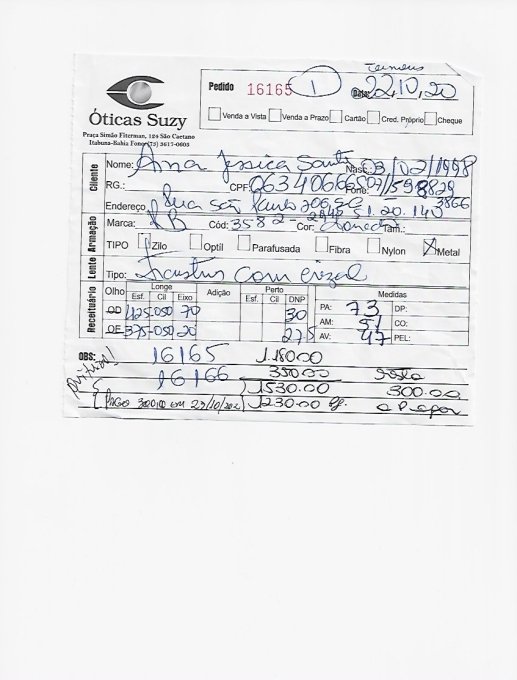 Pedido 16165 1 Data: 22,10,20
Óticas Suzy
Venda a Vista Venda a Prazo Cartão Cred. Próprio Cheque
Praça Simão Fiterman, 124 São Caetano
Itabuna-Bahia Fone: (73) 3617-0605
Cliente
Nome: Ana Jessica Santos Nasc. 03/02/1998
RG.: CPF: Fone:
Endereço Rua São Paulo 3866
Armação
Marca: RB Cód: 3582 - Cor: Tam.:
TIPO Zilo Optíl Parafusada Fibra Nylon X Metal
Lente
Tipo: com
Receituário
Olho Longe Adição Perto Medidas
Esf. Cil Eixo Esf. Cil DNP PA: 73 DP:
OD -050 70 30 AM: 51 CO:
OE -375 -050 20 27.5 AV: 47 PEL:
OBS: 16165 1.180.00
16166 350.00
1530.00 300.00
PAGO 300,00 em 1230.00 a Pagar